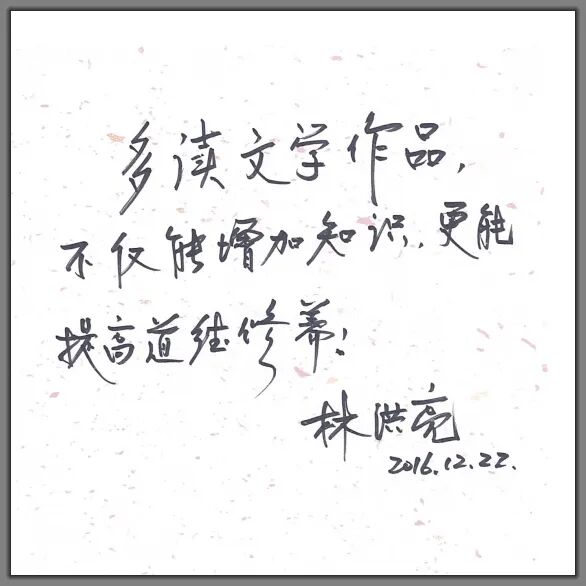 多读文学作品,
不仅能增加知识,更能
提高道德修养!
林洪亮
2016.12.22.